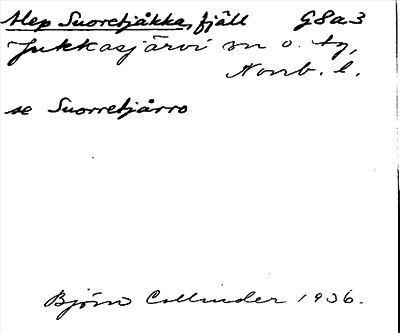 Alep Suoretjåkka, fjäll G8a3
Jukkasjärvi sn o. tg,
Norrb. l.
se Suorretjårro
Björn Collinder 1936.